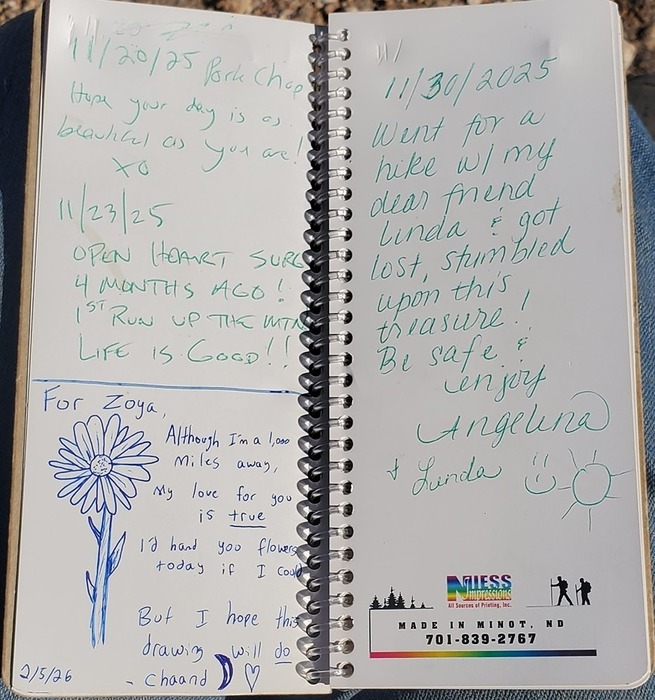 11/20/25 Pork Chop
Hope your day is as
beautiful as you are!
XO
11/23/25
OPEN HEART SURG
4 MONTHS AGO!
1ST RUN UP THE MTN
LIFE IS GOOD!!
For Zoya,
Although I'm a 1,000
miles away,
My love for you
is true
I'd hand you flowers
today if I could
But I hope this
drawing will do
- Chaand
2/5/26
W/
11/30/2025
Went for a
hike w/ my
dear friend
Linda & got
lost, stumbled
upon this
treasure!
Be safe &
enjoy
Angelina
& Linda
NIESS
Impressions
All Sources of Printing, Inc.
MADE IN MINOT, ND
701-839-2767